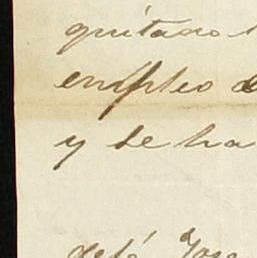 quitado
empleo de
y se ha
dejó José